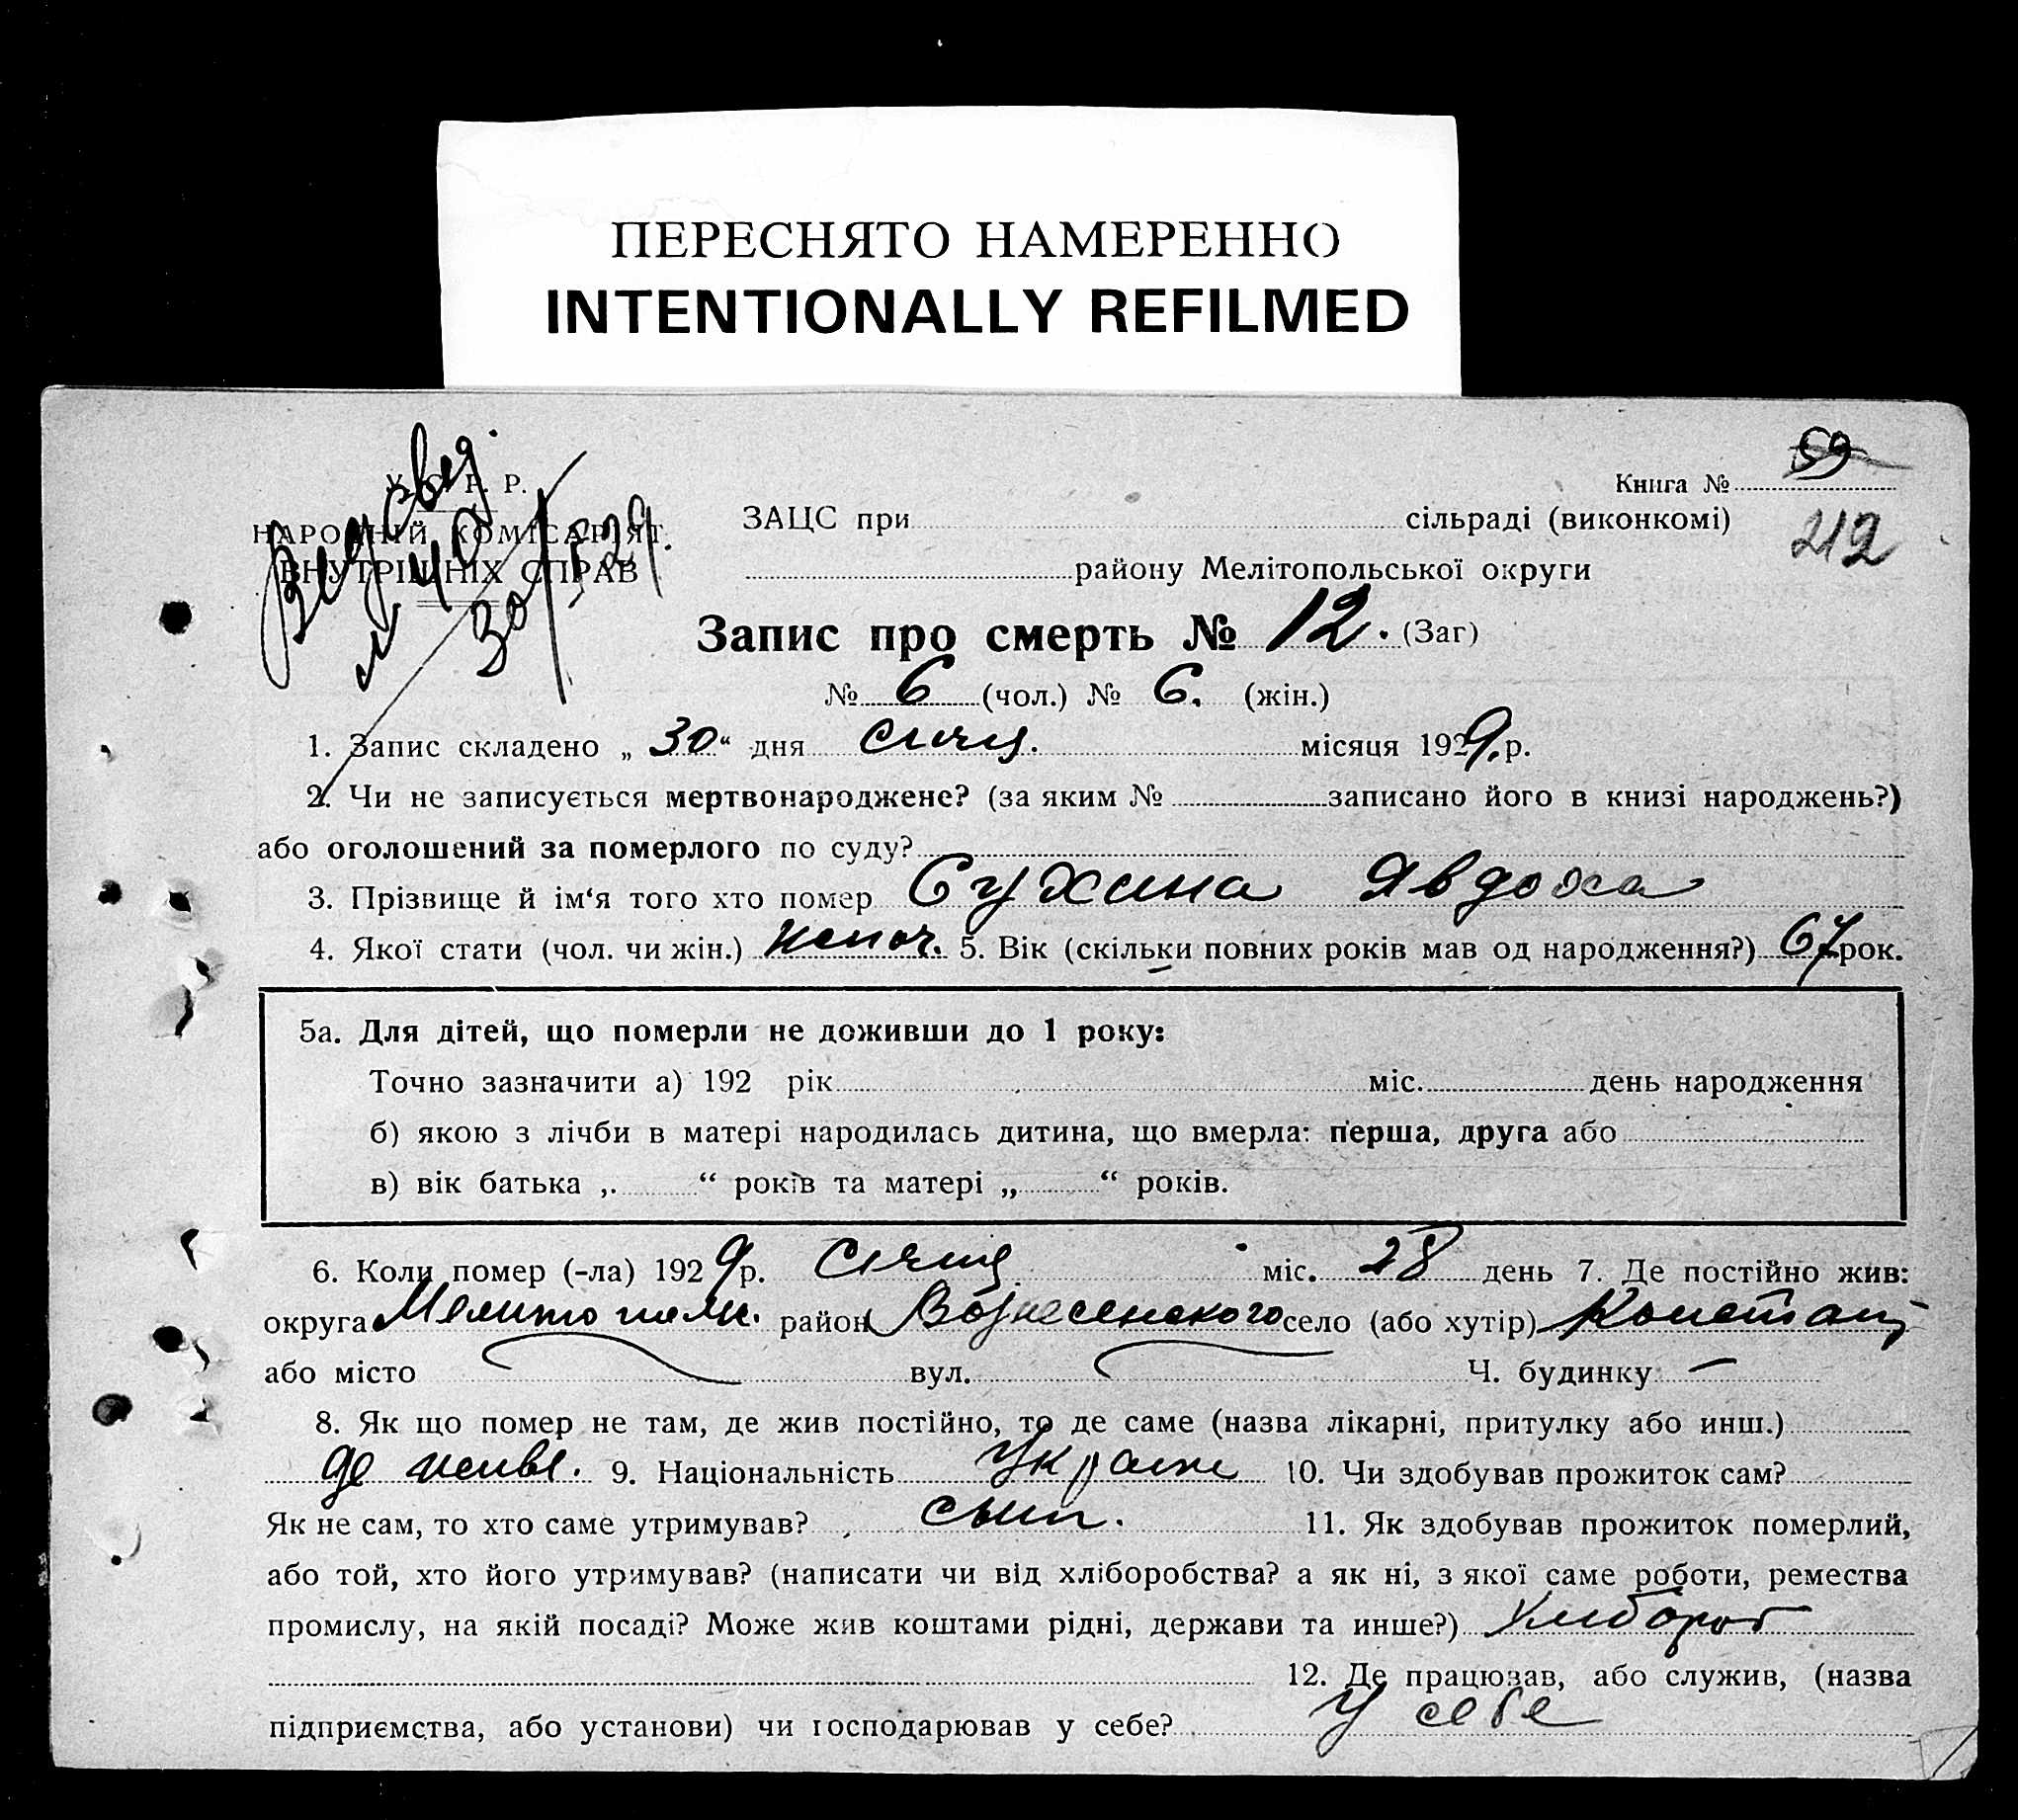 ПЕРЕСНЯТО НАМЕРЕННО
INTENTIONALLY REFILMED
У. С. Р. Р.
НАРОДНІЙ КОМІСАРІЯТ
ВНУТРІШНІХ СПРАВ
Книга № 59
212
ЗАЦС при сільраді (виконкомі)
району Мелітопольської округи
Запис про смерть № 12. (Заг)
№ 6 (чол.) № 6. (жін.)
1. Запис складено „ 30 “ дня січня місяця 1929. р.
2. Чи не записується мертвонароджене? (за яким № записано його в книзі народжень?)
або оголошений за померлого по суду?
3. Прізвище й ім‘я того хто помер Сухина Явдоха
4. Якої стати (чол. чи жін.) 5. Вік (скільки повних років мав од народження?) 67 рок.
5а. Для дітей, що померли не доживши до 1 року:
Точно зазначити а) 192 рік міс. день народження
б) якою з лічби в матері народилась дитина, що вмерла: перша, друга або
в) вік батька „ “ років та матері „ “ років.
6. Коли помер (-ла) 1929 р. Січня міс. 28 день 7. Де постійно жив:
округа Мелитополь. район Вознесенского село (або хутір) Констант
або місто вул. Ч. будинку —
8. Як що помер не там, де жив постійно, то де саме (назва лікарні, притулку або инш.)
де живе. 9. Національність Украине 10. Чи здобував прожиток сам?
Як не сам, то хто саме утримував? сын. 11. Як здобував прожиток померлий,
або той, хто його утримував? (написати чи від хліборобства? а як ні, з якої саме роботи, ремества
промислу, на якій посаді? Може жив коштами рідні, держави та инше?) Хлибороб
12. Де працював, або служив, (назва
підприємства, або установи) чи господарював у себе? У себе